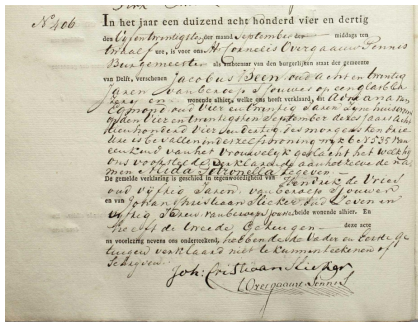 No. 406.
In het jaar een duizend acht honderd vier en dertig
den Vijfentwintigsten der maand September des middags ten
twaalf ure, is voor ons Mr Cornelis Overgaauw Pennis
Burgemeester als Ambtenaar van den burgerlijken staat der gemeente
van Delft, verschenen Jacobus Been oud acht en twintig
Jaren van beroep Sjouwer
en wonende alhier, welke ons heeft verklaard, dat Adriana van
Egmond oud vier en twintig Jaren Zijne huisvrouw
op den Vier en twintigsten September dezes Jaars acht
tienhonderd Vier en dertig des morgens ten drie
ure is bevallen in de wijk 5 No 535 van
een kind van het Vrouwelijk geslacht het welk hij
ons vertoonde verklarende aan hetzelve de na
men Alida Petronella te geven
De gemelde verklaring is geschied in tegenwoordigheid van Hendrik de Vries
oud Vijftig Jaren, van beroep Sjouwer
en van Johan Christiaan Slieker oud Zeven en
Vijftig Jaren van beroep beide wonende alhier. En
heeft de tweede Getuigen deze acte
na voorlezing nevens ons onderteekend, hebbende de Vader en Eerste Ge
tuigen verklaard niet te kunnen teekenen of
Schrijven.
Joh: Cristiaan Slieker
C Overgaauw Pennis